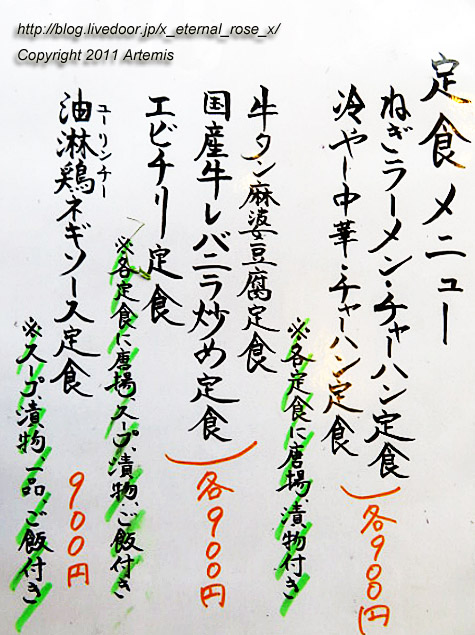 http://blog.livedoor.jp/x_eternal_rose_x/
Copyright 2011 Artemis
定食メニュー
ねぎラーメン・チャーハン定食
冷やし中華・チャーハン定食
各900円
※各定食に唐揚、漬物付き
牛タン麻婆豆腐定食
国産牛レバニラ炒め定食
エビチリ定食
各900円
※各定食に唐揚、スープ、漬物、ご飯付き
ユーリンチー
油淋鶏ネギソース定食
900円
※スープ、漬物、一品、ご飯付き